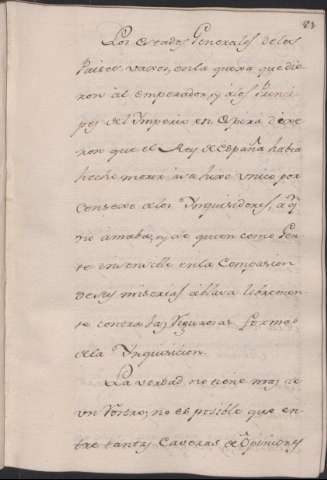 83
Los estados Generales de los
Paises vaxos, en la quexa que die
ron al emperador, y a los Princi
pes del Imperio en Spira dixe
ron que el Rey de españa havia
hecho morir a su hixo vnico por
consexo de los Ynquisidores, a q̃
no amaba, y de quien como
te en la Compasion
de sus miserias ablava libremen
te contra las Figuras formas
de la Ynquisicion.
La verdad, no tiene mas de
vn Rostro; no es posible que en
tre tantas Caveras de Opiniones